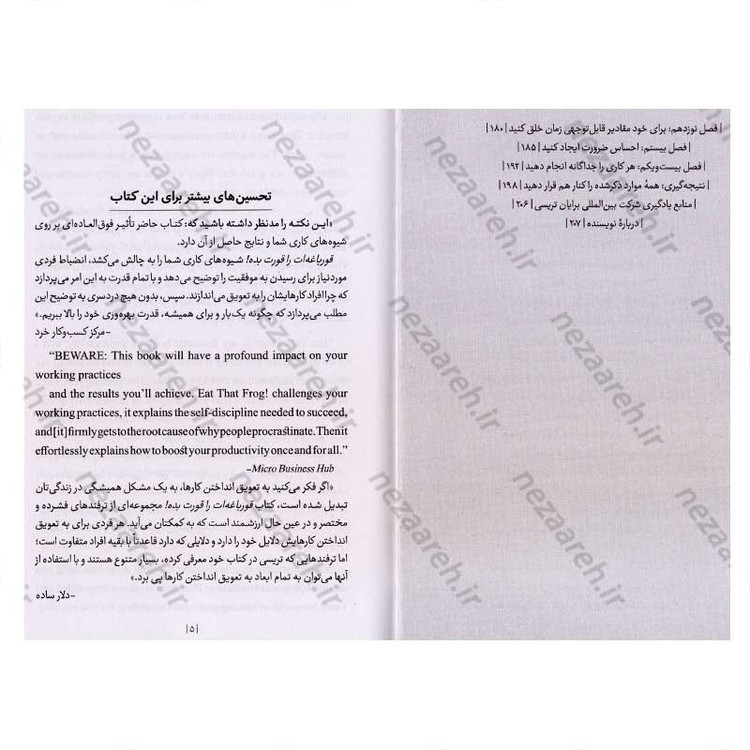 | فصل نوزدهم: برای خود مقادیر قابل‌توجهی زمان خلق کنید | ۱۸۰ |
| فصل بیستم: احساس ضرورت ایجاد کنید | ۱۸۵ |
| فصل بیست‌ویکم: هر کاری را جداگانه انجام دهید | ۱۹۲ |
| نتیجه‌گیری: همهٔ موارد ذکرشده را کنار هم قرار دهید | ۱۹۸ |
| منابع یادگیری شرکت بین‌المللی برایان تریسی | ۲۰۶ |
| دربارهٔ نویسنده | ۲۰۷ |
تحسین‌های بیشتر برای این کتاب
«این نکته را مدنظر داشته باشید که: کتاب حاضر تأثیر فوق‌العاده‌ای بر روی
شیوه‌های کاری شما و نتایج حاصل از آن دارد.
قورباغه‌ات را قورت بده! شیوه‌های کاری شما را به چالش می‌کشد، انضباط فردی
موردنیاز برای رسیدن به موفقیت را توضیح می‌دهد و با تمام قدرت به این امر می‌پردازد
که چرا افراد کارهایشان را به تعویق می‌اندازند. سپس، بدون هیچ دردسری به توضیح این
مطلب می‌پردازد که چگونه یک‌بار و برای همیشه، قدرت بهره‌وری خود را بالا ببریم.»
-مرکز کسب‌وکار خرد
“BEWARE: This book will have a profound impact on your
working practices
and the results you’ll achieve. Eat That Frog! challenges your
working practices, it explains the self-discipline needed to succeed,
and [it] firmly gets to the root cause of why people procrastinate. Then it
effortlessly explains how to boost your productivity once and for all.”
-Micro Business Hub
«اگر فکر می‌کنید به تعویق انداختن کارها، به یک مشکل همیشگی در زندگی‌تان
تبدیل شده است، کتاب قورباغه‌ات را قورت بده! مجموعه‌ای از ترفندهای فشرده و
مختصر و در عین حال ارزشمند است که به کمکتان می‌آید. هر فردی برای به تعویق
انداختن کارهایش دلایل خود را دارد و دلایلی که دارد قاعدتاً با بقیه افراد متفاوت است؛
اما ترفندهایی که تریسی در کتاب خود معرفی کرده، بسیار متنوع هستند و با استفاده از
آنها می‌توان به تمام ابعاد به تعویق انداختن کارها پی برد.»
-دلار ساده
| ۵ |
nezaareh.ir
nezaareh.ir
nezaareh.ir
nezaareh.ir
nezaareh.ir
nezaareh.ir
nezaareh.ir